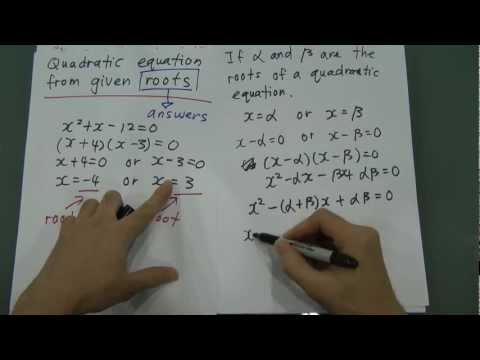 Quadratic equation
from given roots
answers
x²+x-12=0
(x+4)(x-3)=0
x+4=0 or x-3=0
x=-4 or x=3
root
If α and β are the
roots of a quadratic
equation.
x=α or x=β
x-α=0 or x-β=0
(x-α)(x-β)=0
x²-αx-βx+αβ=0
x²-(α+β)x+αβ=0
x